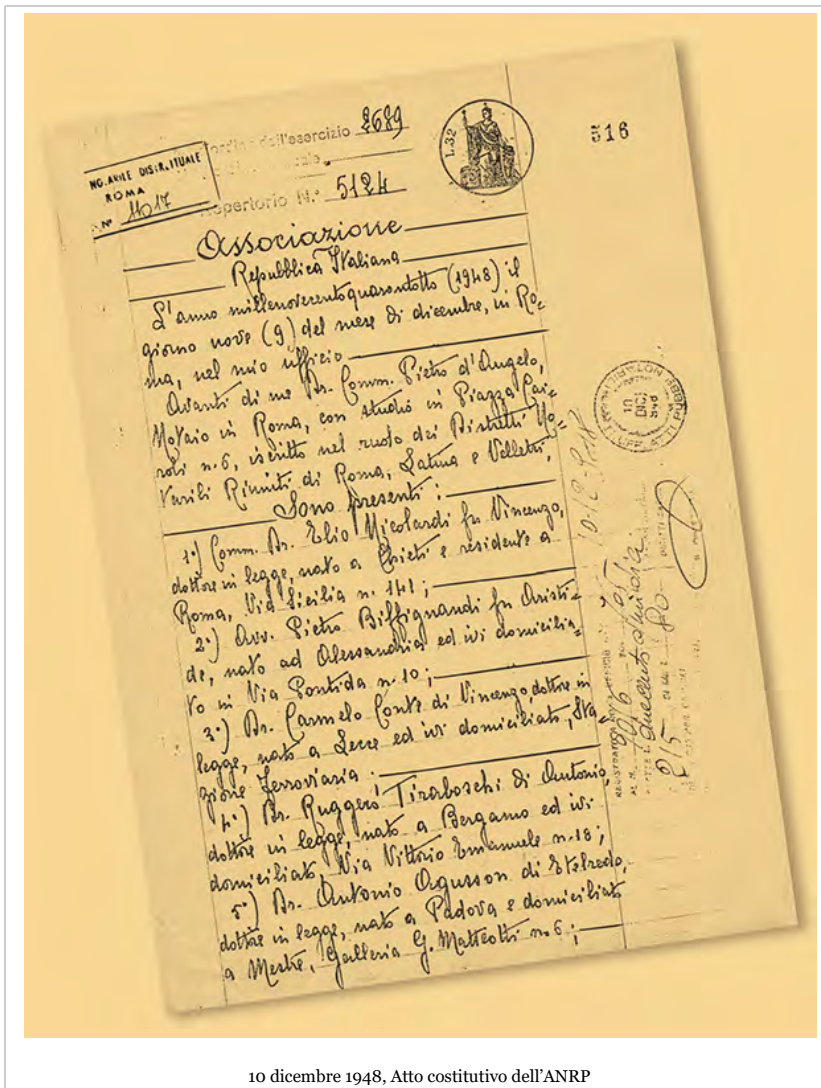 516
NO.ARILE DISTR.ITUALE
ROMA
N° 11017
dell'esercizio 2689
Repertorio N.° 5124
L.32
Associazione
Repubblica Italiana
L'anno millenovecentoquarantotto (1948) il
giorno nove (9) del mese di dicembre, in Ro=
ma, nel mio ufficio
Avanti di me Dr. Comm. Pietro d'Angelo,
Notaio in Roma, con studio in Piazza Cai=
roli n. 6, iscritto nel ruolo dei Distretti No=
tarili Riuniti di Roma, Latina e Velletri,
Sono presenti:
1°) Comm. Dr. Elio Nicolardi fu Vincenzo,
dottore in legge, nato a Chieti e residente a
Roma, Via Sicilia n. 141;
2°) Avv. Pietro Biffignandi fu Aristi=
de, nato ad Alessandria ed ivi domicilia=
to in Via Pontida n. 10;
3°) Dr. Carmelo Conte di Vincenzo, dottore in
legge, nato a Lecce ed ivi domiciliato, Sta=
zione Ferroviaria.
4°) Dr. Ruggero Tiraboschi di Antonio,
dottore in legge, nato a Bergamo ed ivi
domiciliato, Via Vittorio Emanuele n. 18;
5°) Dr. Antonio Agusson di Etelredo,
dottore in legge, nato a Padova e domiciliato
a Mestre, Galleria G. Matteotti n. 6;
10
DIC
10 dicembre 1948, Atto costitutivo dell'ANRP